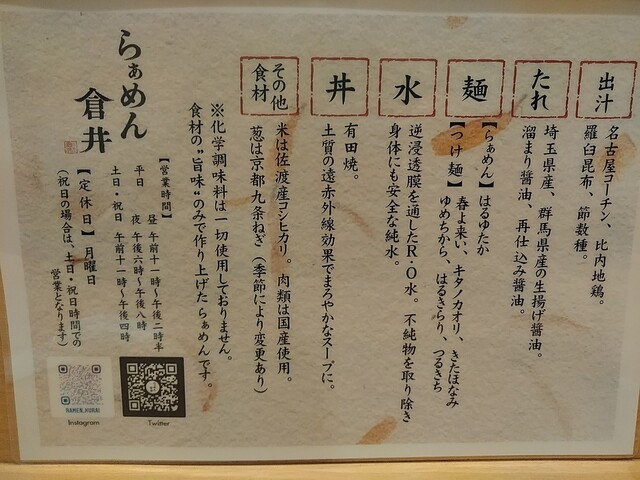 出汁
名古屋コーチン、比内地鶏。
羅臼昆布、節数種。
たれ
埼玉県産、群馬県産の生揚げ醤油。
溜まり醤油、再仕込み醤油。
麺
【らぁめん】はるゆたか
【つけ麺】春よ来い、キタノカオリ、きたほなみ
ゆめちから、はるきらり、つるきち
水
逆浸透膜を通したR.O水。不純物を取り除き
身体にも安全な純水。
丼
有田焼。
土質の遠赤外線効果でまろやかなスープに。
その他
食材
米は佐渡産コシヒカリ。肉類は国産使用。
葱は京都九条ねぎ(季節により変更あり)
※化学調味料は一切使用しておりません。
食材の"旨味"のみで作り上げたらぁめんです。
らぁめん
倉井
【営業時間】
平日 昼 午前十一時〜午後二時半
夜 午後六時〜午後八時
土日・祝日 午前十一時〜午後四時
【定休日】月曜日
(祝日の場合は、土日・祝日時間での
営業となります)
RAMEN_KURAI
Instagram
Twitter